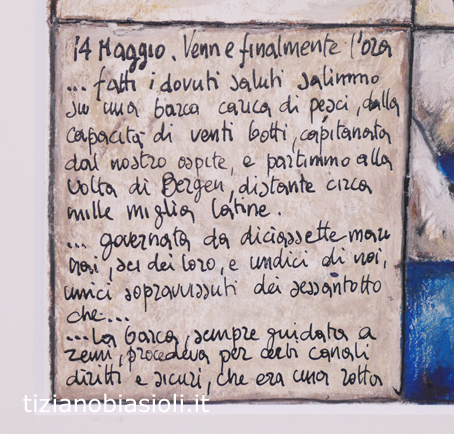 14 Maggio. Venne finalmente l'ora
... fatti i dovuti saluti salimmo
su una barca carica di pesci, dalla
capacità di venti botti, capitanata
dal nostro ospite, e partimmo alla
volta di Bergen, distante circa
mille miglia latine.
... governata da diciassette mari
nai, sei dei loro, e undici di noi,
unici sopravvissuti dei sessantotto
che...
...La barca, sempre guidata a
remi, procedeva per certi canali
diritti e sicuri, che era una rotta
tizianobiasioli.it